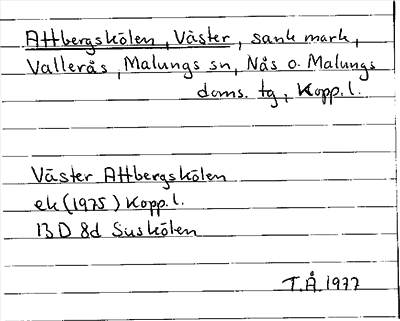 Attbergskölen, Väster, sank mark,
Vallerås, Malungs sn, Nås o. Malungs
doms. tg, Kopp. l.
Väster Attbergskölen
ek (1975) Kopp. l.
13 D 8d Suskölen
T.Å. 1977